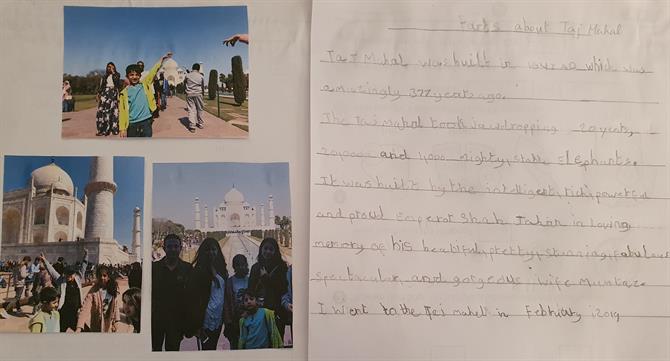 Facts about Taj Mahal
Taj Mahal was built in which was
amazingly 372 years ago.
The Taj mahal took jaw dropping 20 years,
20,000 and 1,000 mighty, stable Elephants.
It was built by the intelligent, rich, powerful
and proud Emperor Shah Jahan in loving
memory of his beautiful, pretty, stunning, fabulous
spectacular, and gorgeous wife Mumtaz.
I went to the Taj mahel in February 2019